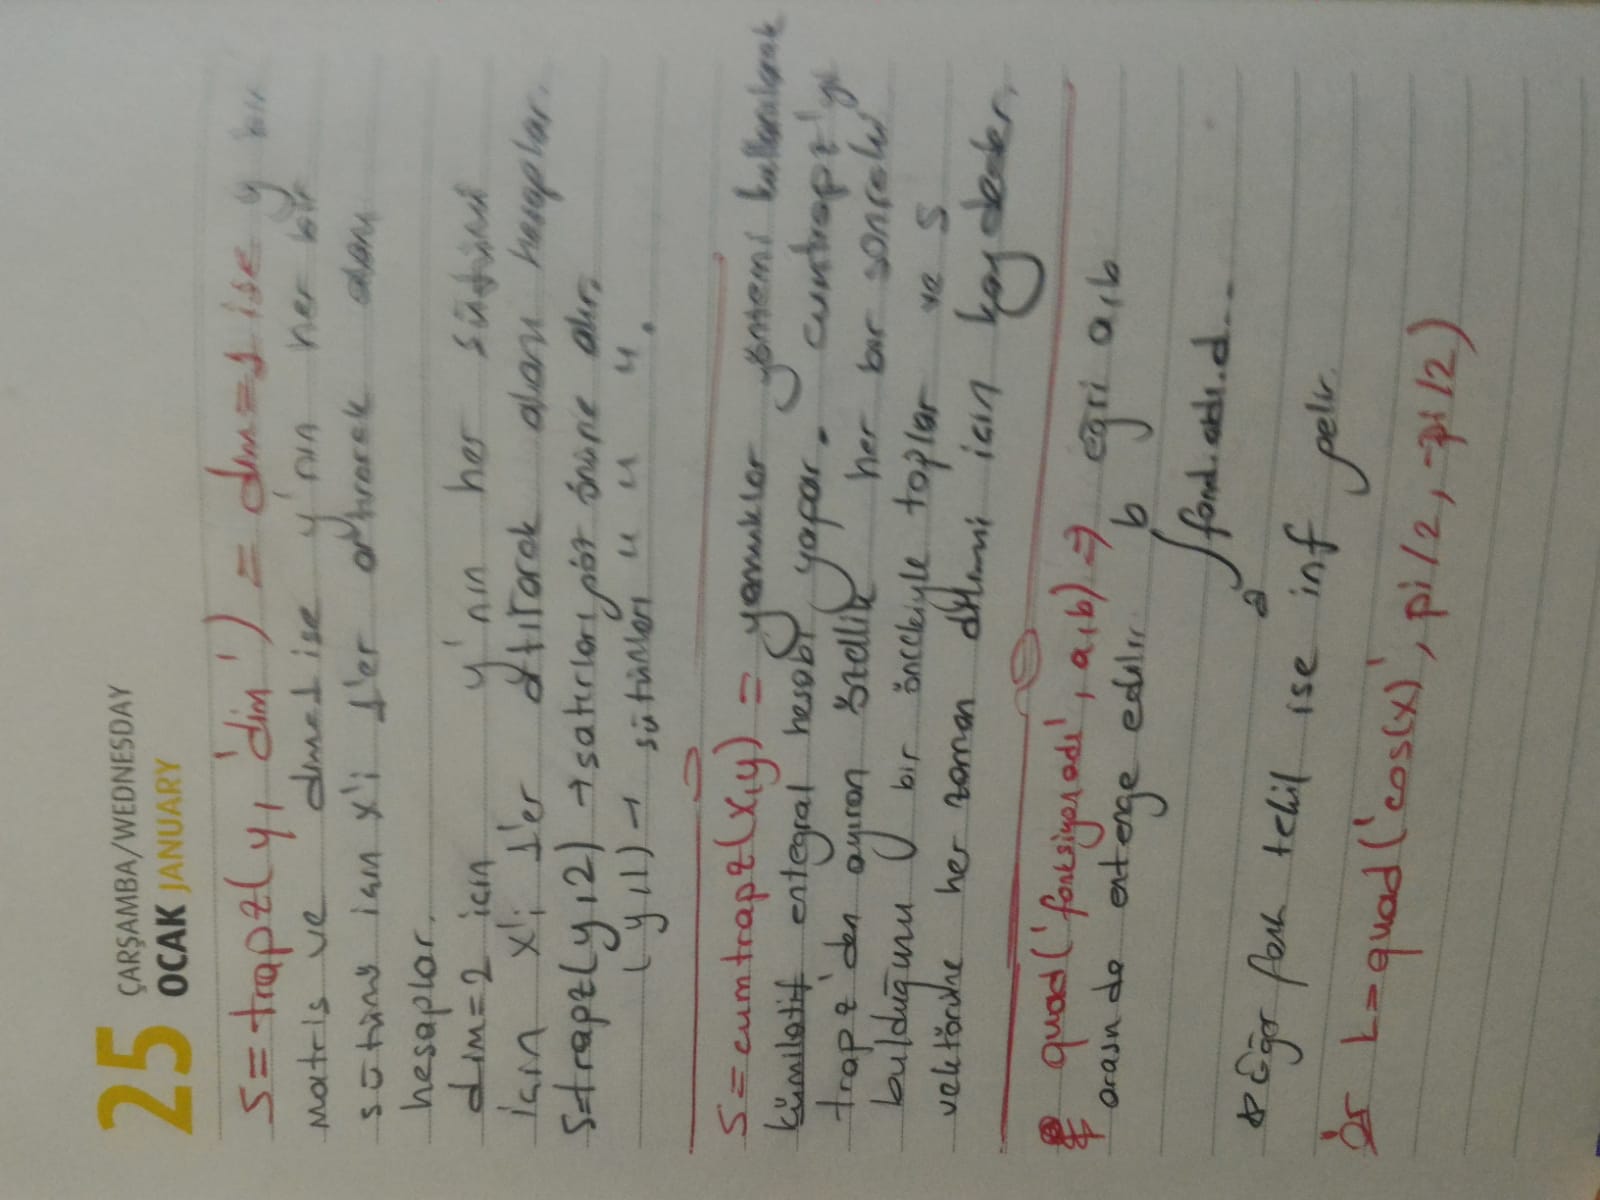 25
ÇARŞAMBA/WEDNESDAY
OCAK JANUARY
S=trapz(y,'dim') = dim=1 ise y bir
matris ve dim=1 ise y'nin her bir
sütunu için x'i 1'er arttırarak alanı
hesaplar.
dim=2 için y'nin her sütunu
için x'i 1'er arttırarak alanı hesaplar.
S=trapz(y,2) → satırları göz önüne alır.
(y,1) → sütunları " " " ".
S=cumtrapz(x,y) = yamuklar yöntemi kullanılarak
kümilatif entegral hesabı yapar. cumtrapz'yi
trapz'den ayıran özellik her bir sonraki
bulduğunu bir öncekiyle toplar ve S
vektörüne her zaman dilimi için kaydeder.
quad('fonksiyonadı',a,b) ⇒ eğri a,b
arasında entegre edilir.
b
∫fonk.adı.d...
a
Eğer fonk tekil ise inf gelir.
Ör L=quad('cos(x)',pi/2,-pi/2)